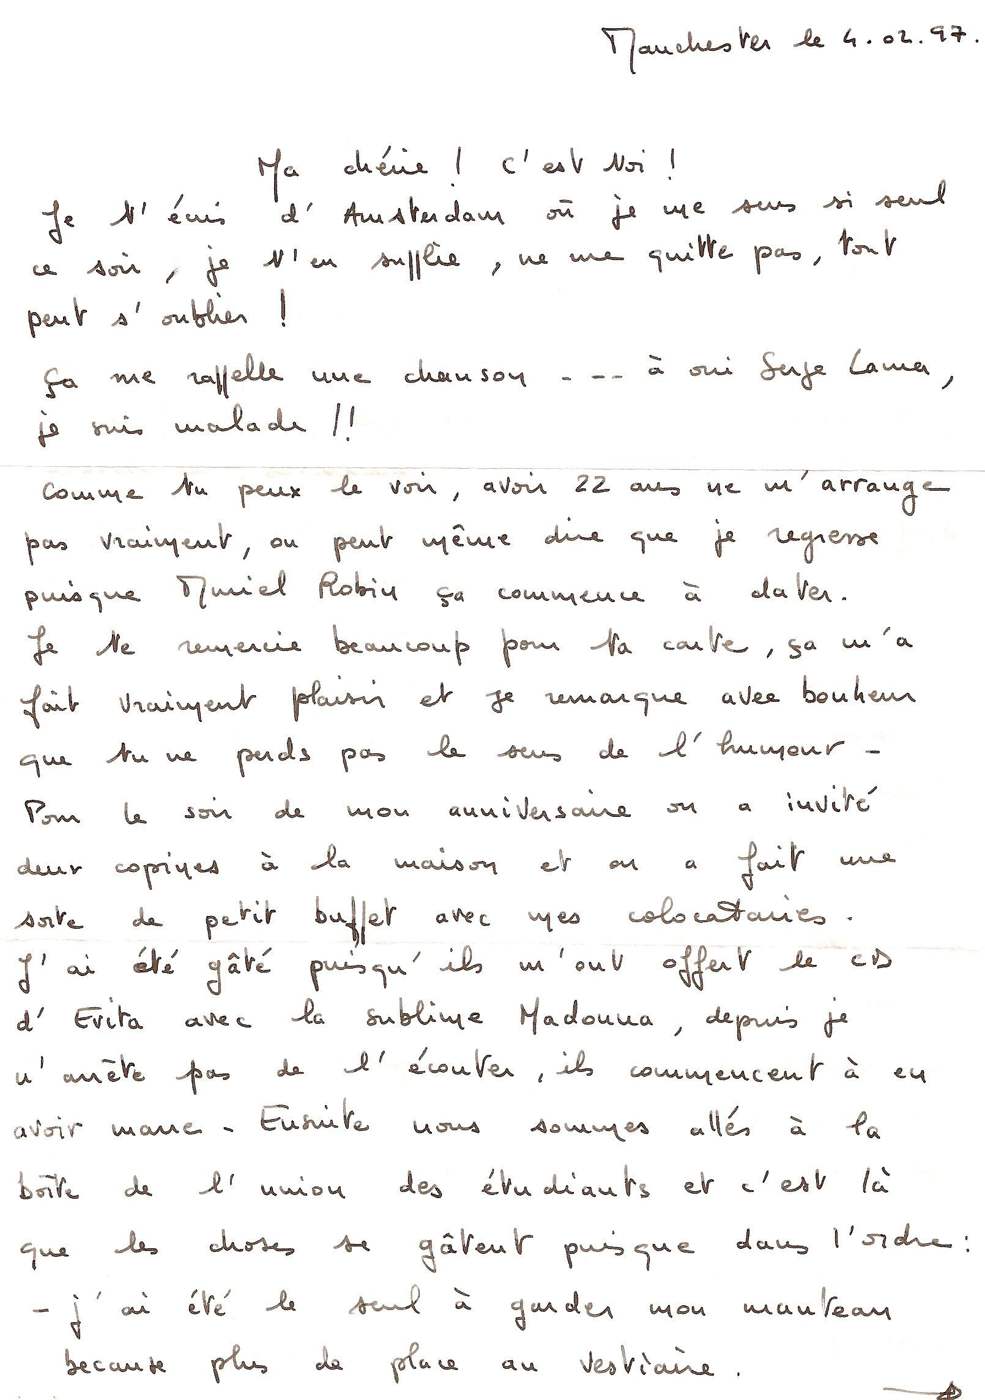 Manchester le 4.02.97.
Ma chérie ! C'est toi !
Je t'écris d'Amsterdam où je me sens si seul
ce soir, je t'en supplie, ne me quitte pas, tout
peut s'oublier !
ça me rappelle une chanson - - - à oui Serge Lama,
je suis malade !!
Comme tu peux le voir, avoir 22 ans ne m'arrange
pas vraiment, on peut même dire que je regresse
puisque Muriel Robin ça commence à dater.
Je te remercie beaucoup pour ta carte, ça m'a
fait vraiment plaisir et je remarque avec bonheur
que tu ne perds pas le sens de l'humour -
Pour le soir de mon anniversaire on a invité
deux copines à la maison et on a fait une
sorte de petit buffet avec mes colocataires.
J'ai été gâté puisqu'ils m'ont offert le CD
d'Evita avec la sublime Madonna, depuis je
n'arrête pas de l'écouter, ils commencent à en
avoir marre - Ensuite nous sommes allés à la
boîte de l'union des étudiants et c'est là
que les choses se gâtent puisque dans l'ordre:
- j'ai été le seul à garder mon manteau
because plus de place au vestiaire.